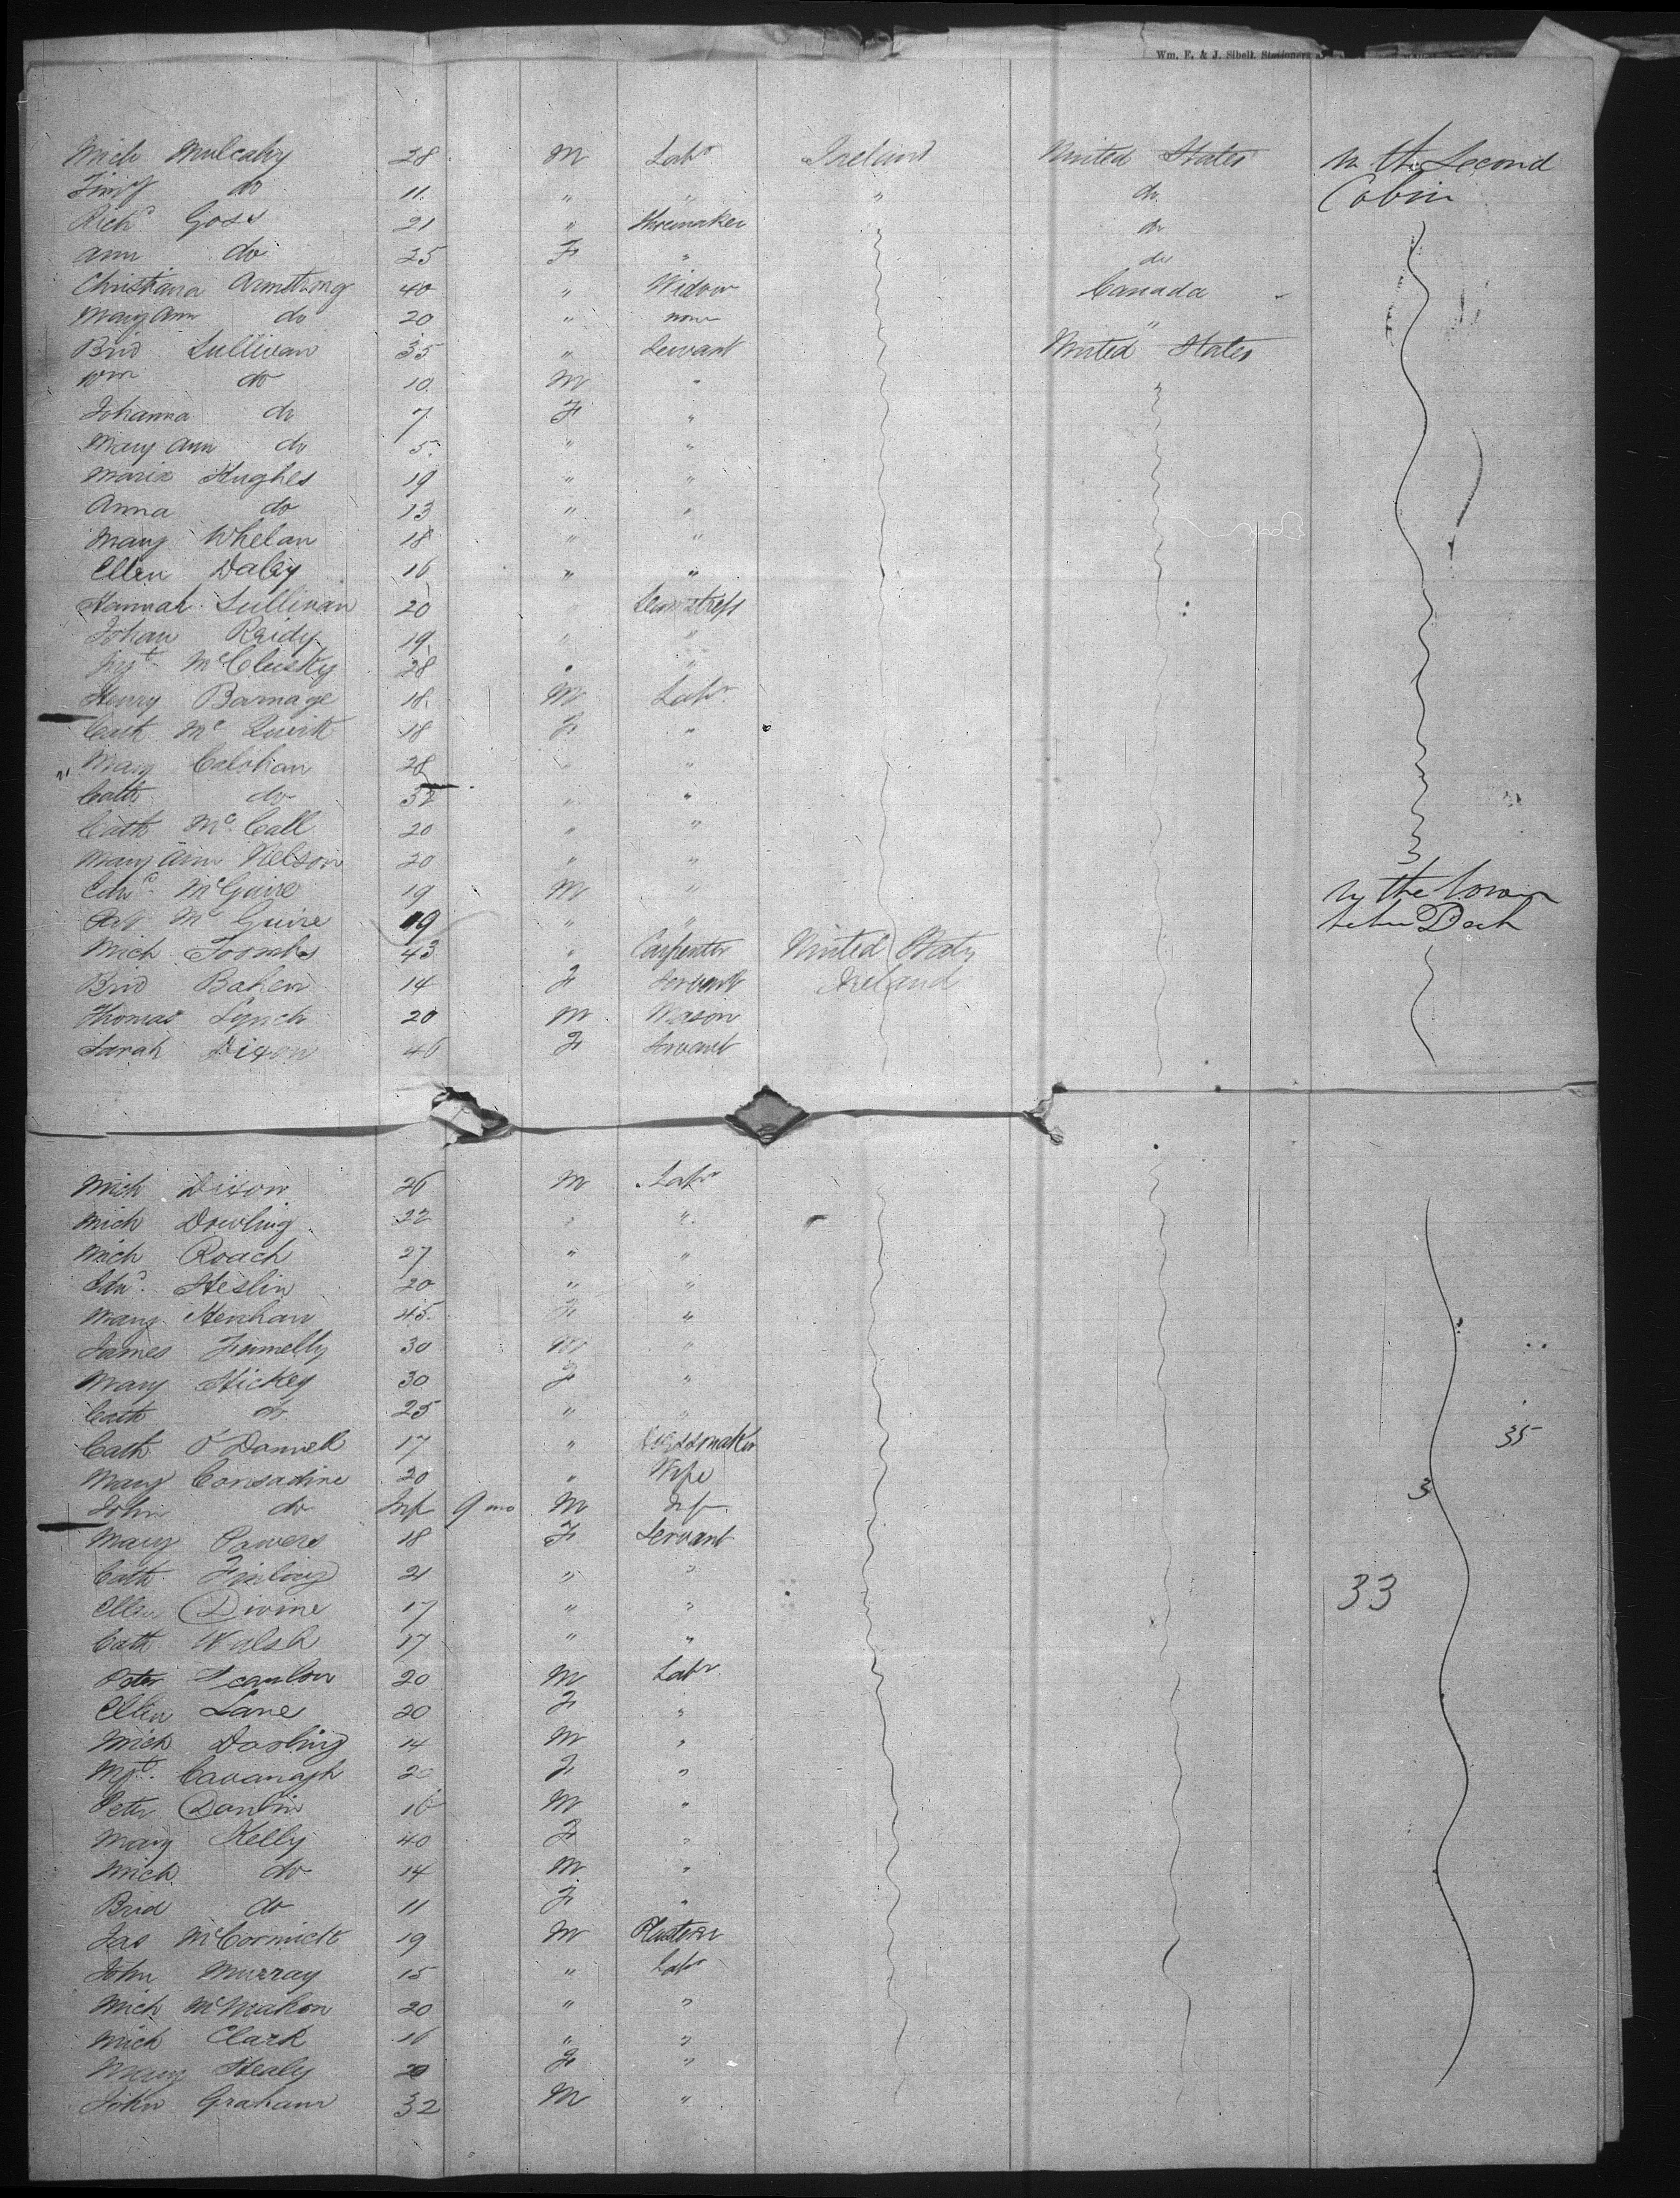 Wm. F. & J. Sibell, Stationers
Mich Mulcahy 28 M Labr Ireland United States In the Second
Timy do 11 " " " do Cabin
Richd Goss 21 " Shoemaker do
Ann do 25 F " do
Christiana Armstrong 40 " Widow Canada
Mary Ann do 20 " none "
Brid Sullivan 35 " Servant United States
Wm do 10 M "
Johanna do 7 F "
Mary Ann do 5 " "
Maria Hughes 19 " "
Anna do 13 " "
Mary Whelan 18 " "
Ellen Daley 16 " "
Hannah Sullivan 20 " Seamstress
Johan Reidy 19 " "
Mgt McClusky 28 " "
Henry Barnage 18 M Labr
Cath Mc 18 F "
Mary Calahan 28 " "
Cath do 32 " "
Cath McCall 20 " "
Mary Ann Nelson 20 " "
Edwd McGuire 19 M " In the Lower
McGuire 19 " " between Deck
Mich Toombs 43 " Carpenter United States
Brid Baken 14 F Servant Ireland
Thomas Lynch 20 M Mason
Sarah Dixon 46 F Servant
Mich Dixon 26 M Labr
Mich Dowling 22 " "
Mich Roach 27 " "
Edwd Heslin 20 " "
Mary Henhan 45 F "
James Finnelly 30 M "
Mary Hickey 30 F "
Cath do 25 " "
Cath O'Donnell 17 " Dressmaker 35
Mary Consadine 20 " Wife
John do Inf 9 mo M Inf 3
Mary Powers 18 F Servant
Cath Finlay 21 " "
Ellen Divine 17 " " 33
Cath Walsh 17 " "
Peter Scanlon 20 M Labr
Ellen Lane 20 F "
Mich Dooling 14 M "
Mgt Cavanagh 20 F "
Peter Donlin 16 M "
Mary Kelly 40 F "
Mich do 14 M "
Brid do 11 F "
Jas McCormick 19 M Plasterer
John Murray 15 " Labr
Mich McMahon 20 " "
Mich Clark 16 " "
Mary Healy 20 F "
John Graham 32 M "